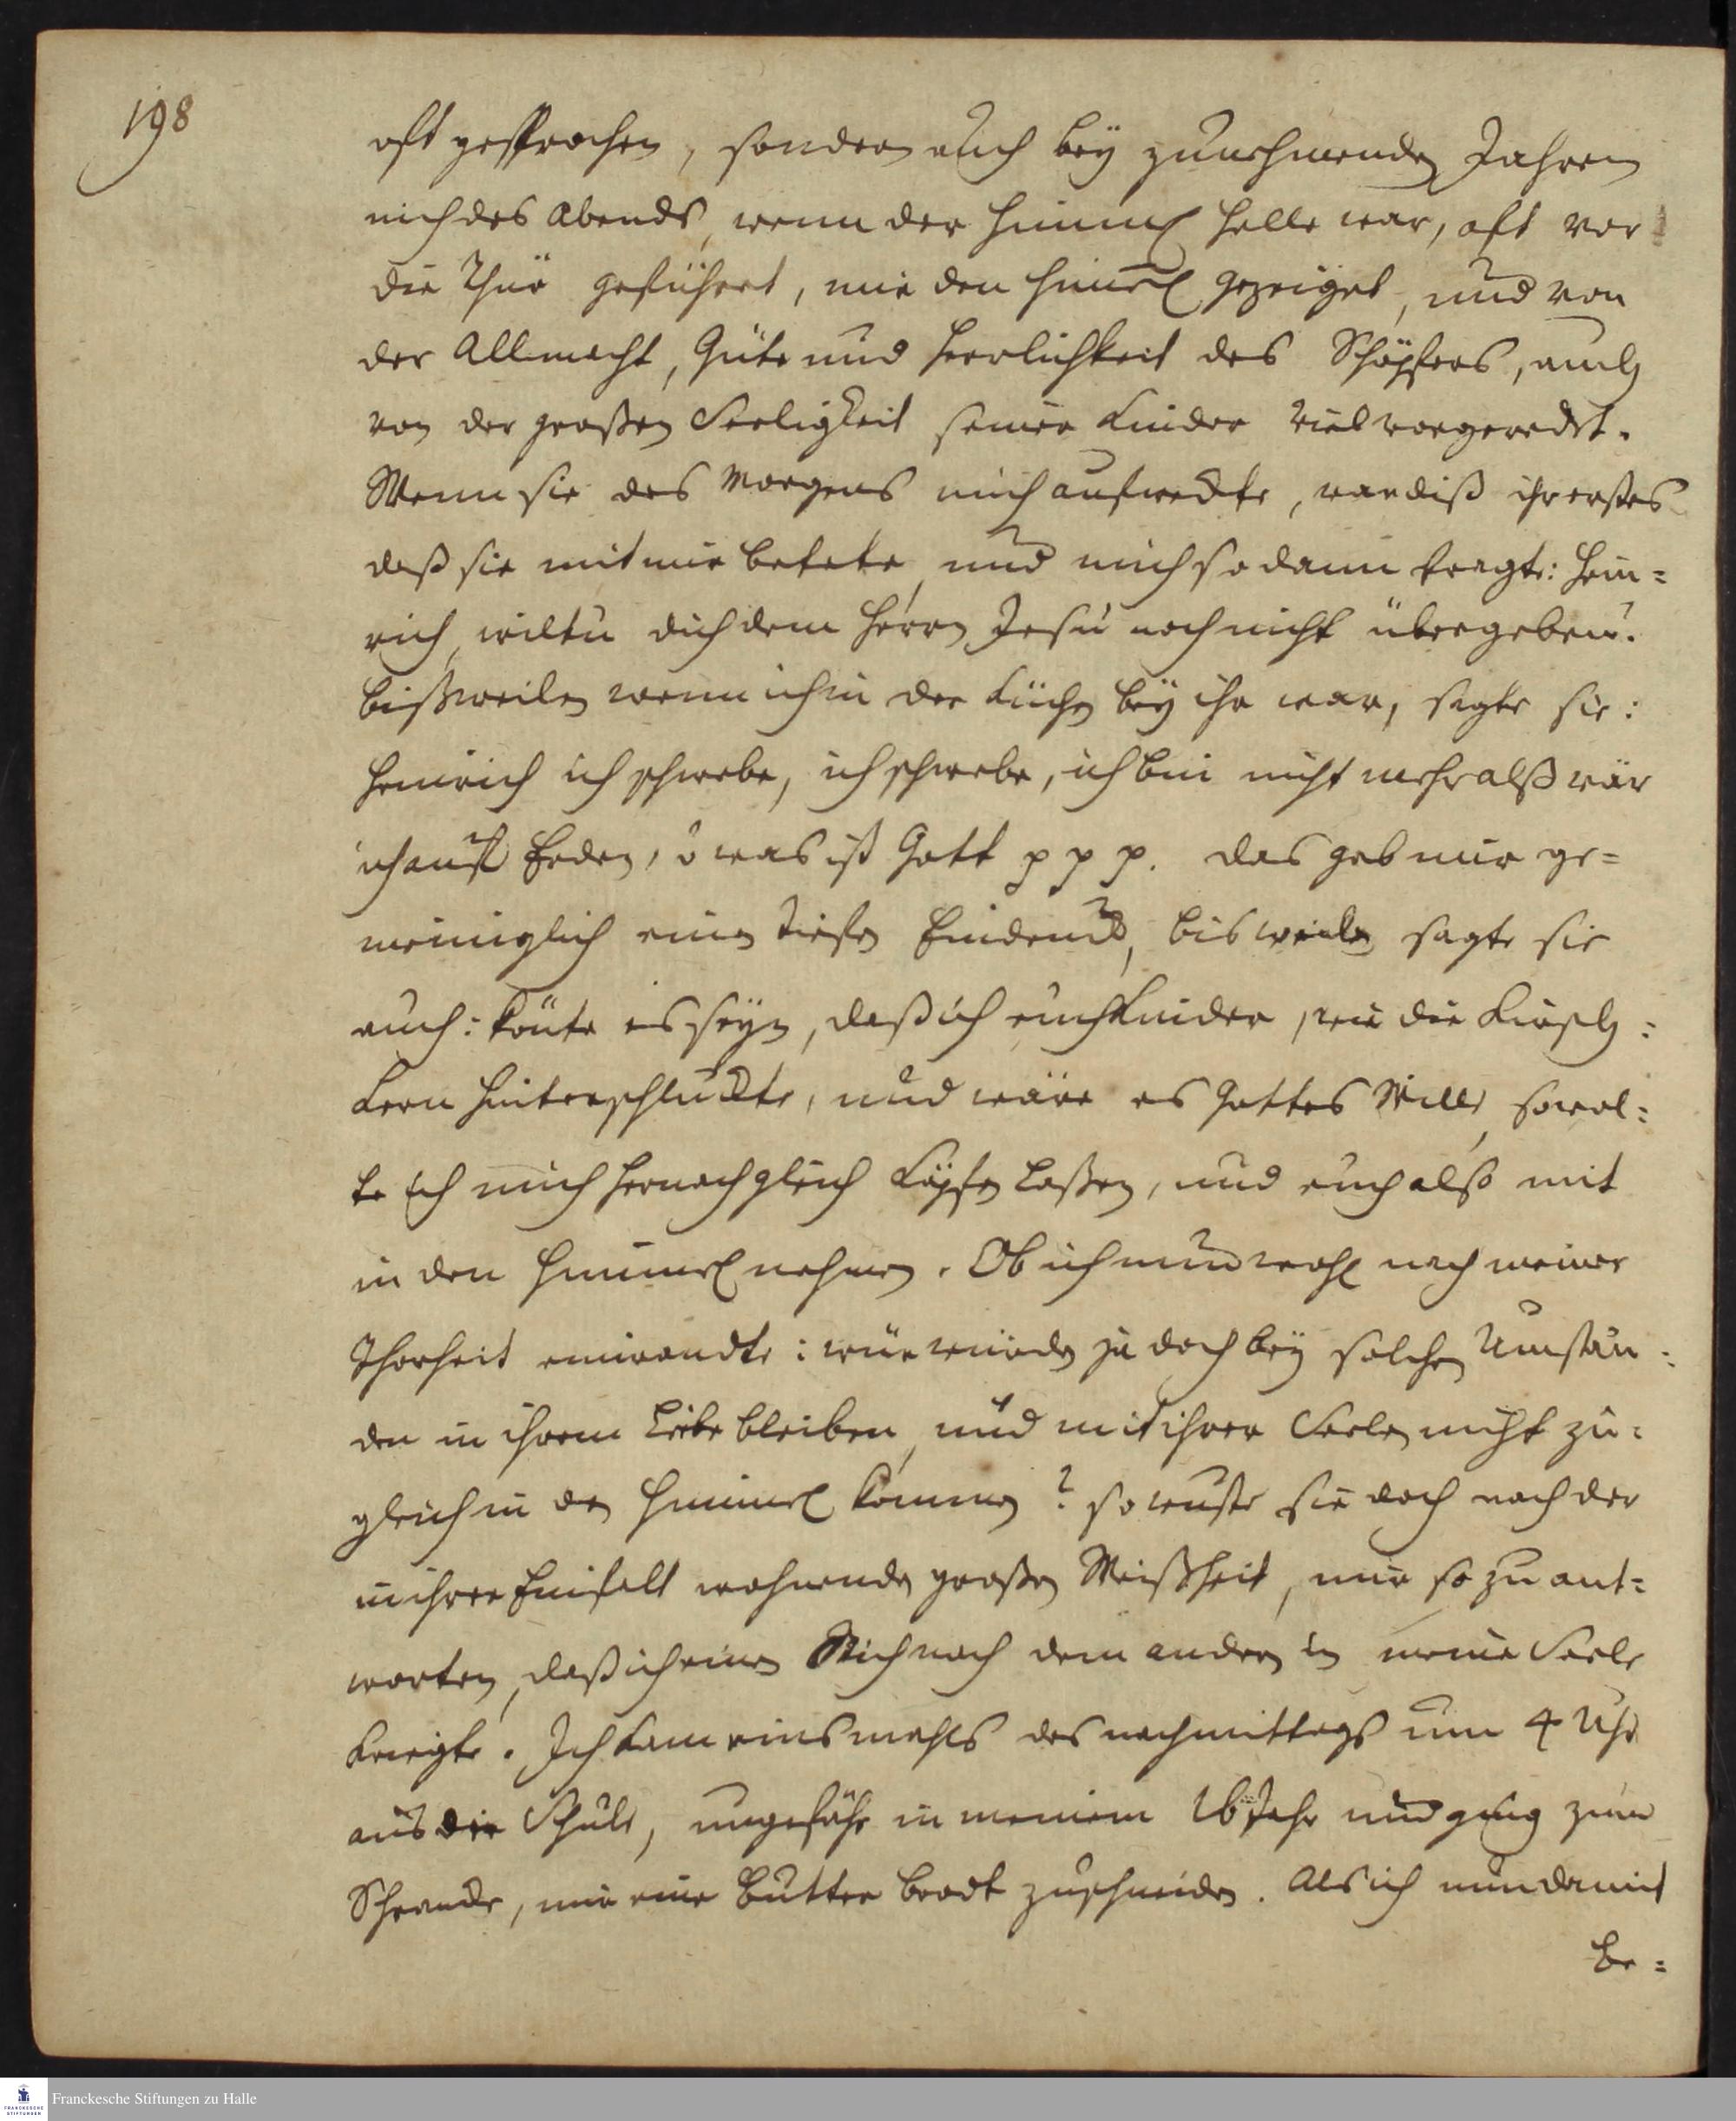 198
oft gesprochen, sondern auch bey zunehmenden Jahren
mich des Abends, wenn der Himmel helle war, oft vor
die Thür geführet, mir den Himel gezeiget, und von
der Allmacht, Güte und Herrlichkeit des Schöpfers, auch
von der großen Seeligkeit seiner Kinder viel vorgeredet.
Wenn sie des Morgens mich aufweckte, war diß ihr erstes
daß sie mit mir betete, und mich sodann fragte: Hein=
rich, wiltu dich dem Herrn Jesu noch nicht übergeben?
bißweilen wenn ich in der Küche bey ihr war, sagte sie:
Heinrich ich schwebe, ich schwebe, ich bin nicht mehr alß wär
ich auf Erden, ô was ist Gott p p p. das gab mir ge=
meiniglich einen tiefen Eindruck, bisweilen sagte sie
auch: könte es seyn, daß ich euch Kinder, wie die Kirsch=
Kern hinterschluckte, und wäre es Gottes Wille, so wol=
te ich mich hernach gleich köpfen laßen, und euch alßo mit
in den Himmel nehmen. Ob ich nun wohl nach meiner
Thorheit einwandte: wir würden ja doch bey solchen Umstän=
den in ihrem Leibe bleiben, und mit ihrer Seelen nicht zu=
gleich in den Himmel kommen? so wuste sie doch nach der
in ihrer Einfalt wohnenden großen Weißheit, mir so zu ant=
worten, daß ich einen Stich nach dem andern in meine Seele
kriegte. Ich kam einsmahls des nachmittags um 4 Uhr
aus der Schule, ungefähr in meinem 16 Jahr und ging zum
Schrancke, mir eine Butter brodt zuschneiden. Als ich nun damit
be=
Franckesche Stiftungen zu Halle
FRANCKESCHE
STIFTUNGEN